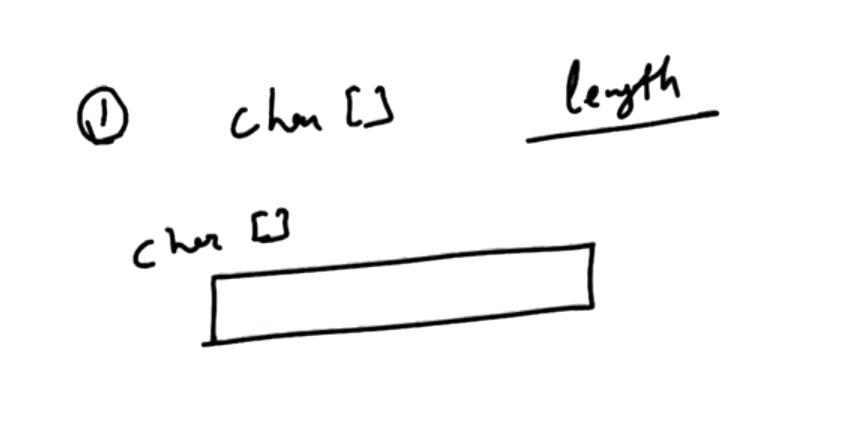 ① char [] length
char []